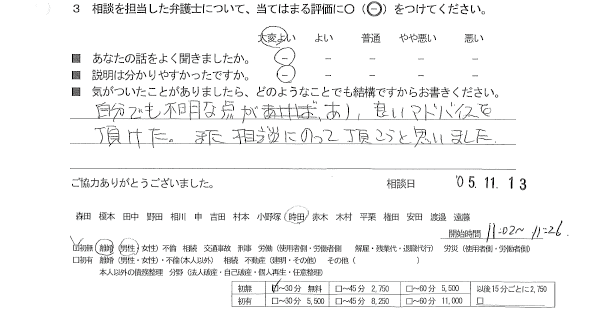 3 相談を担当した弁護士について、当てはまる評価に○(⊖)をつけてください。
大変よい よい 普通 やや悪い 悪い
■ あなたの話をよく聞きましたか。 － － － － －
■ 説明は分かりやすかったですか。 － － － － －
■ 気がついたことがありましたら、どのようなことでも結構ですからお書きください。
自分でも不明な点があれば、あり、良いアドバイスを
頂けた。また相談にのって頂こうと思いました。
ご協力ありがとうございました。 相談日 '05.11.13
森田 榎本 田中 野田 相川 申 吉田 村本 小野塚 時田 赤木 木村 平栗 権田 安田 渡邉 遠藤
開始時間 11:02～11:26
□初無 離婚(男性・女性)不倫 相続 交通事故 刑事 労働(使用者側・労働者側 解雇・残業代・退職代行) 労災(使用者側・労働者側)
□初有 離婚(男性・女性)・不倫(本人以外) 相続 不動産(建明・その他) その他( )
本人以外の債務整理 分野(法人破産・自己破産・個人再生・任意整理)
初無 □～30分 無料 □～45分 2,750 □～60分 5,500 以後15分ごとに2,750
初有 □～30分 5,500 □～45分 8,250 □～60分 11,000 □